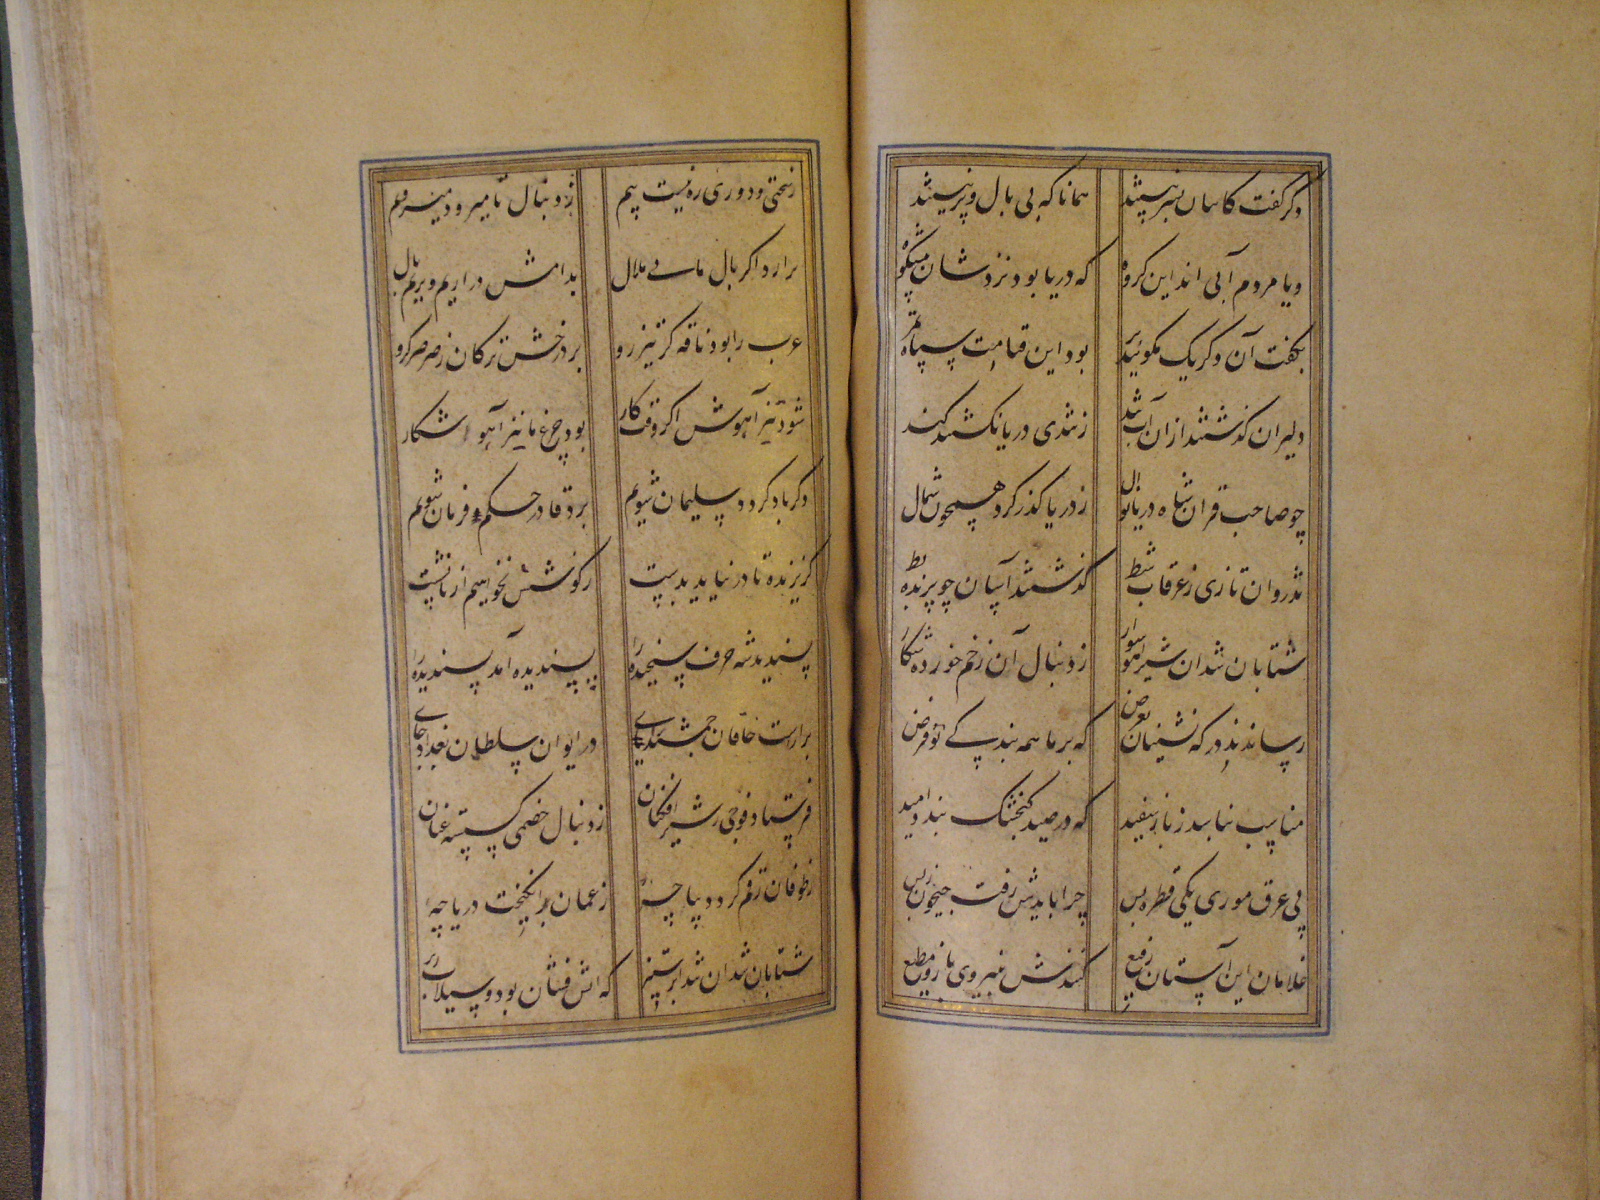 دگر گفت کاسان نبر نیستند همانا که بی بال و پر نیستند
ویا مردم آبی اند این گروه که دریا بود نزدشان
بگفت آن دگر یک مگوئید بود این قیامت سپاه
دلیران گذشتند از آن آب تند ز تندی دریا نگشتند کند
چو صاحب قران شاه دریا نوال ز دریا گذر کرد همچون شمال
تذروان تازی ز غرقاب شط گذشتند آسان چو پرنده بط
شتابان شد آن شیر ز دنبال آن زخم خورده شکار
رساندند درگه نشینان بعرض که بر ما همه بندگی تو فرض
مناسب نباشد ز باز سفید که در صید گنجشک بندد امید
پی غرق موری یکی قطره بس چرا بایدش رفت جیحون ز پس
غلامان این آستان رفیع کنندش بنیروی بازو مطیع
ز سختی و دوری ره نیست بیم ز دنبال تا میرود میرویم
برارد اگر بال ماهی ملال بدامش دراریم و بریم بال
عرب را بود ناقه گر تیزرو بود رخش ترکان ز صرصر گرو
شود تیز آهوش اگر وقت کار بود چرغ ما نیز آهو شکار
وگر باد گردد سلیمان شویم برو قادر حکم و فرمان شویم
گریزنده تا در نیاید بدست ز کوشش نخواهیم از پا نشست
پسندید شه حرف سنجیده را پسندیده آمد پسندیده را
براراست خاقان جمشید رای در ایوان سلطان بغداد جای
فرستاد فوجی ز شیر افکنان ز دنبال خصمی گسسته عنان
ز طوفان رقم کرد دیباچه ز عمان برانگیخت دریاچه
شتابان شد آن تند ابر ستیز که آتش فشان بود و سیلاب ریز